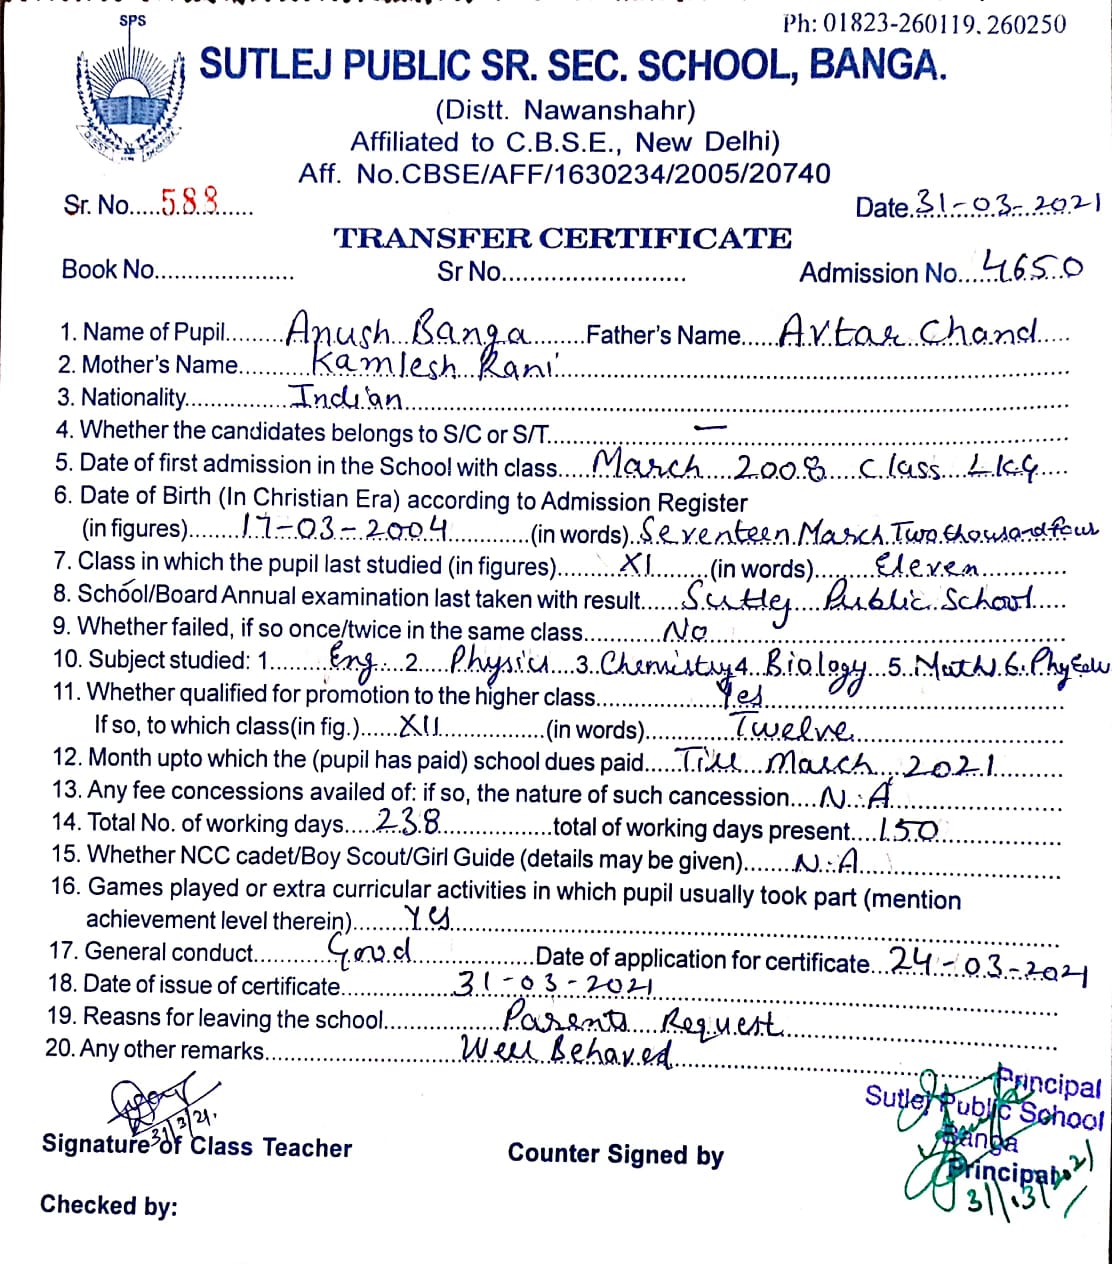 SPS
Ph: 01823-260119, 260250
SUTLEJ PUBLIC SR. SEC. SCHOOL, BANGA.
(Distt. Nawanshahr)
Affiliated to C.B.S.E., New Delhi)
Aff. No.CBSE/AFF/1630234/2005/20740
Sr. No.....588...... Date.31-03-2021
TRANSFER CERTIFICATE
Book No.................... Sr No........................... Admission No...4650
1. Name of Pupil........Anush Banga........Father's Name.....Avtar Chand.....
2. Mother's Name..........Kamlesh Rani
3. Nationality...............Indian
4. Whether the candidates belongs to S/C or S/T...............—
5. Date of first admission in the School with class....March 2008 Class LKG....
6. Date of Birth (In Christian Era) according to Admission Register
(in figures)........17-03-2004............(in words).Seventeen March Two thousand four
7. Class in which the pupil last studied (in figures).........XI........(in words)........Eleven............
8. School/Board Annual examination last taken with result......Sutlej Public School.....
9. Whether failed, if so once/twice in the same class...........No
10. Subject studied: 1........Eng. 2....Physics 3.Chemistry 4.Biology 5.Maths 6.Phy Edu
11. Whether qualified for promotion to the higher class..................Yes
If so, to which class(in fig.)......XII................(in words)............Twelve
12. Month upto which the (pupil has paid) school dues paid.....Till March, 2021..........
13. Any fee concessions availed of: if so, the nature of such cancession....N.A
14. Total No. of working days.....238................total of working days present....150
15. Whether NCC cadet/Boy Scout/Girl Guide (details may be given).......N.A
16. Games played or extra curricular activities in which pupil usually took part (mention
achievement level therein)........Yes
17. General conduct............Good..................Date of application for certificate...24-03-2021
18. Date of issue of certificate.................31-03-2021
19. Reasns for leaving the school..................Parents Request
20. Any other remarks.............................Well Behaved
Principal
Sutlej Public School
Banga
31/3/21.
Signature of Class Teacher Counter Signed by Principal
31/03/2021
Checked by: